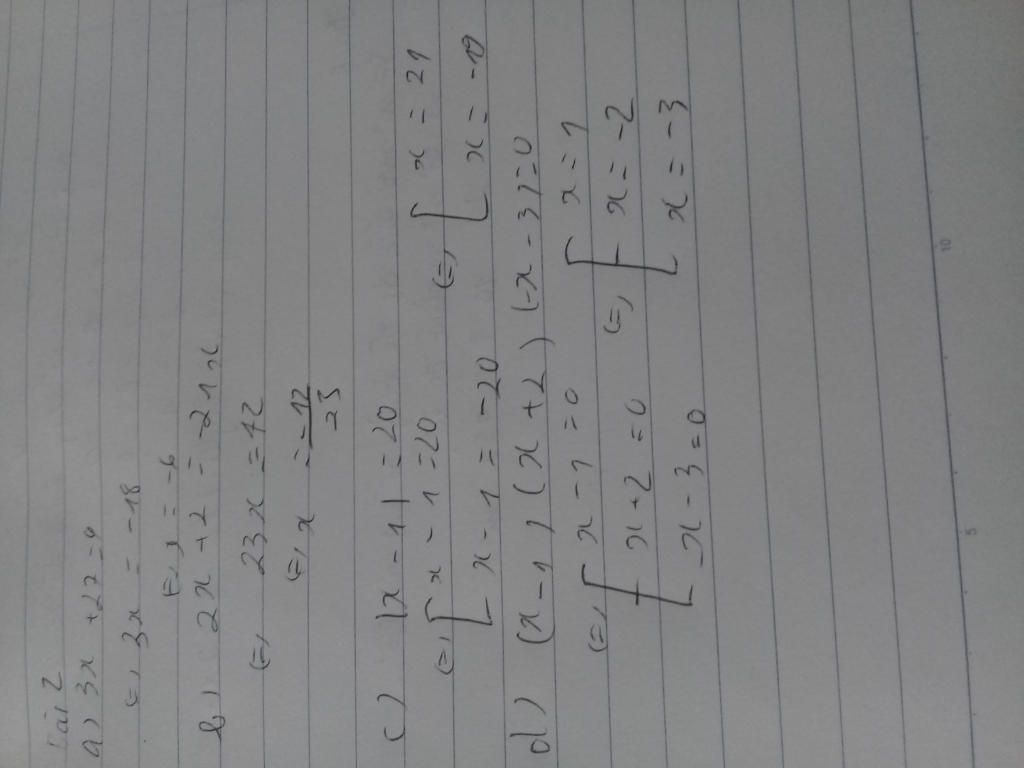 Bài 2
a) 3x + 27 = 9
(=) 3x = -18
(=) x = -6
b) 2x + 2 = -21x
(=) 23x = 42
(=) x =
c) |x - 1| = 20
(=) [ x - 1 = 20
[ x - 1 = -20 (=) [ x = 21
[ x = -19
d) (x - 1) (x + 2) (-x - 3) = 0
(=) [ x - 1 = 0
[ x + 2 = 0
[ -x - 3 = 0 (=) [ x = 1
[ x = -2
[ x = -3